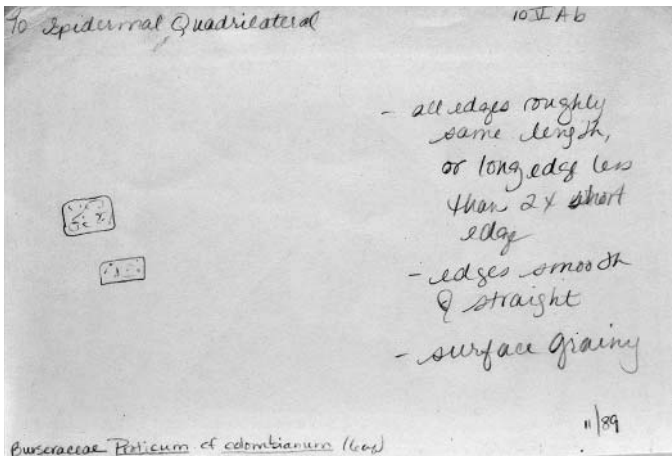 10 Epidermal Quadrilateral
10 V A b
- all edges roughly
same length,
or long edge less
than 2x short
edge
- edges smooth
& straight
- surface grainy
11/89
Burseraceae Proticum cf colombianum (leaf)